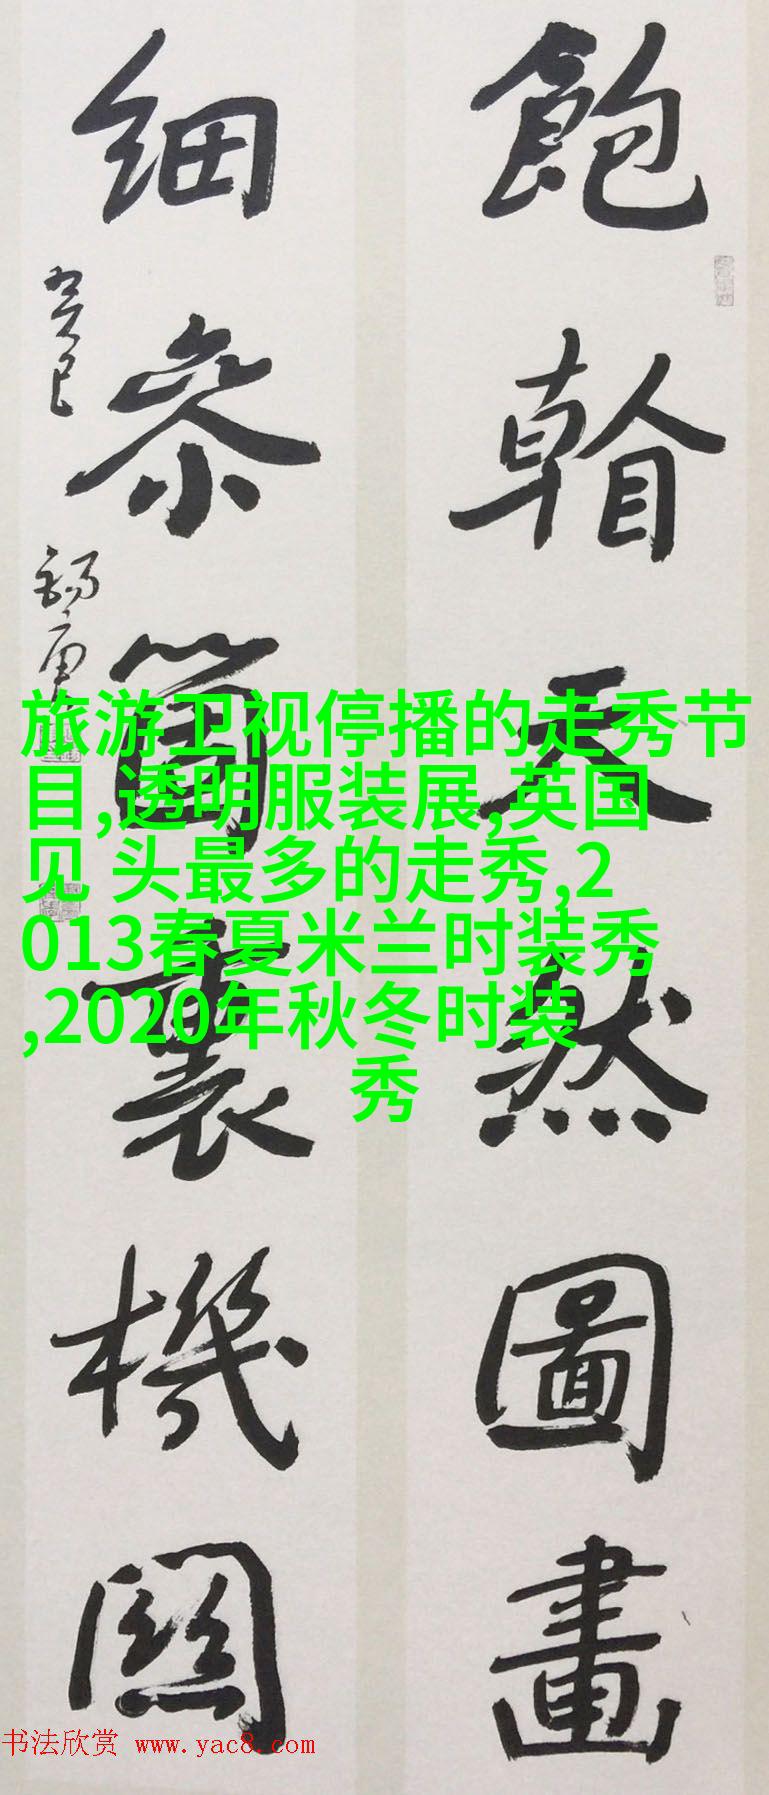 飽天然圖畫
細參箇裏機關
癸巳
旅游卫视停播的走秀节
目,透明服装展,英国
见 头最多的走秀,2
013春夏米兰时装秀
,2020年秋冬时装
秀
书法欣赏 www.yac8.com